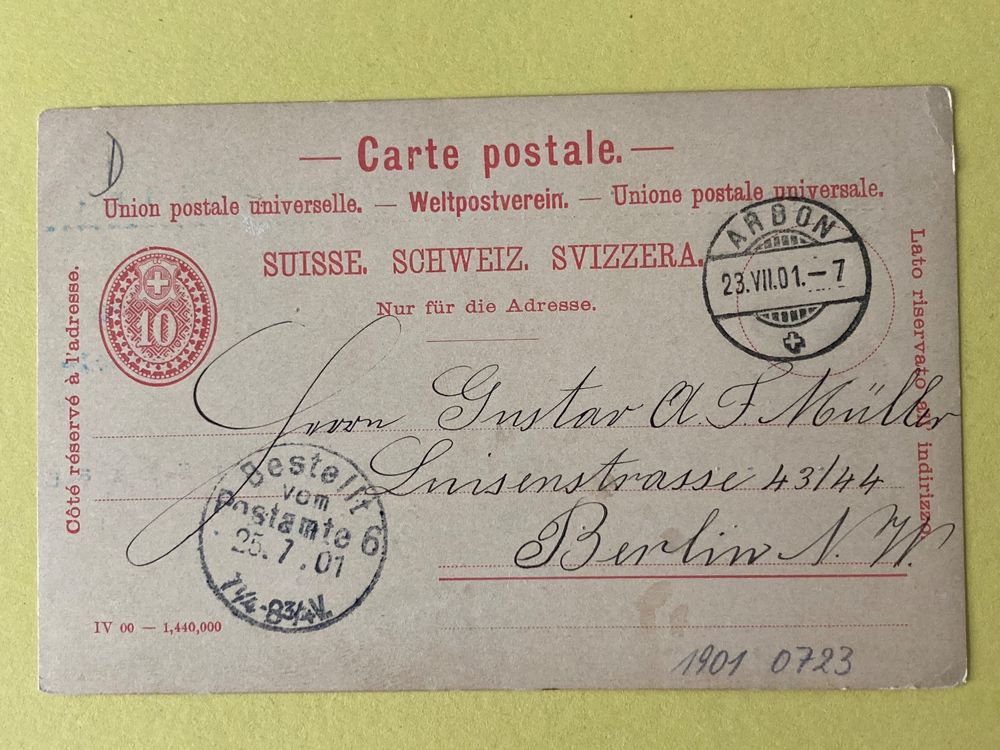 D
— Carte postale. —
Union postale universelle. — Weltpostverein. — Unione postale universale.
SUISSE. SCHWEIZ. SVIZZERA.
Nur für die Adresse.
Côté réservé à l'adresse.
Lato riservato all' indirizzo.
10
ARBON
23.VII.01.–7
Herrn Gustav A. F. Müller
Luisenstrasse 43/44
Berlin N. W.
Bestellt
vom
Postamte 6
25.7.01
7 1/4-8 3/4 V.
IV 00 — 1,440,000
1901 0723